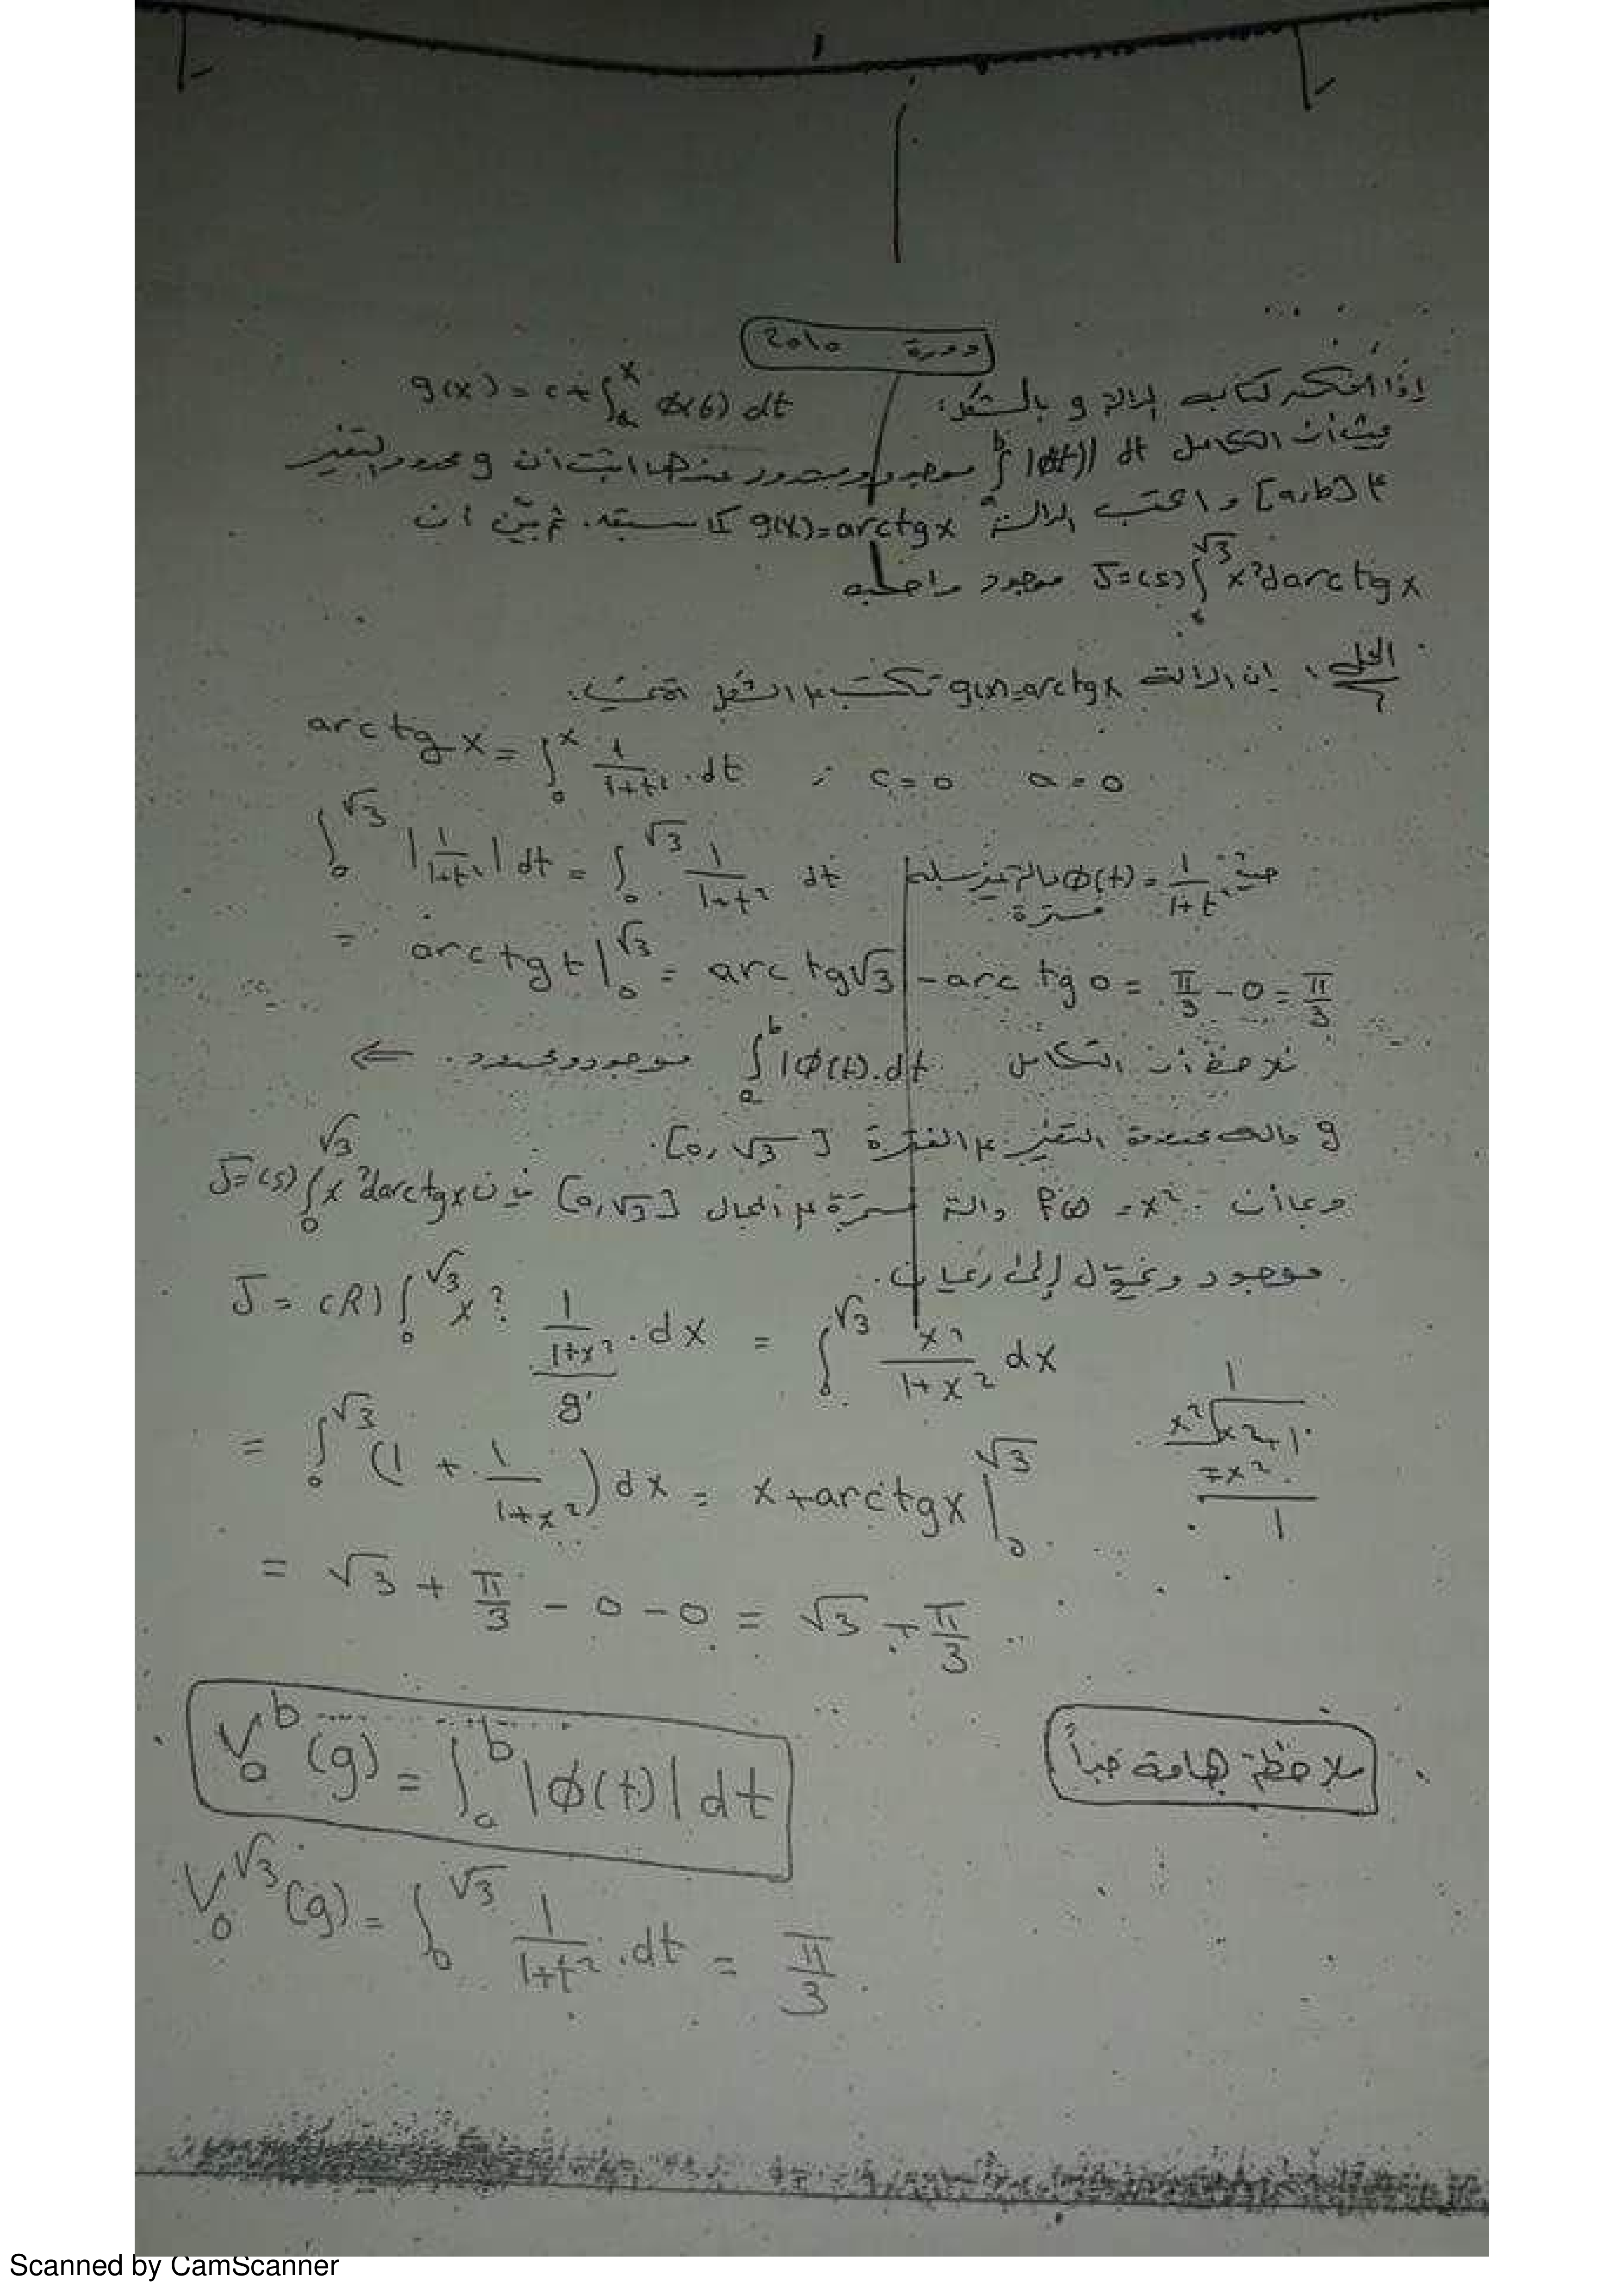 دورة 2010
إذا أمكن كتابة الدالة g بالشكل: g(x) = c + ∫_a^x φ(t) dt
حيث أن التكامل ∫_a^b |φ(t)| dt موجود ومحدود عندها اثبت ان g محدود التغير
[a,b] واكتب الدالة g(x)=arctgx كما سبق. ثم بيّن ان
J=(S)∫^√3 x²darctgx موجود واحسبه
الحل: ان الدالة g(x)=arctgx تكتب الشكل
arctgx = ∫_0^x 1/(1+t²) . dt ; c=0 a=0
∫_0^√3 |1/(1+t²)| dt = ∫_0^√3 1/(1+t²) dt حيث φ(t) = 1/(1+t²) دالة غير سالبة
مستمرة
= arctgt|_0^√3 = arctg√3 - arctg0 = π/3 - 0 = π/3
نلاحظ أن التكامل ∫_a^b |φ(t).dt موجود ومحدود. ⇐
g دالة محدودة التغير الفترة [0,√3].
وبما أن f(x) = x² دالة مستمرة المجال [0,√3] فإن J=(S)∫_0^√3 x²darctgx
موجود ونحوّل إلى ريمان.
J = (R)∫_0^√3 x² 1/(1+x²) . dx = ∫_0^√3 x²/(1+x²) dx
g'
= ∫_0^√3 (1 + 1/(1+x²)) dx = x+arctgx|_0^√3
1
x² x²+1
∓x²
1
= √3 + π/3 - 0 - 0 = √3 + π/3
ملاحظة هامة جداً
V_a^b (g) = ∫_a^b |φ(t)| dt
V_0^√3 (g) = ∫_0^√3 1/(1+t²) . dt = π/3
Scanned by CamScanner